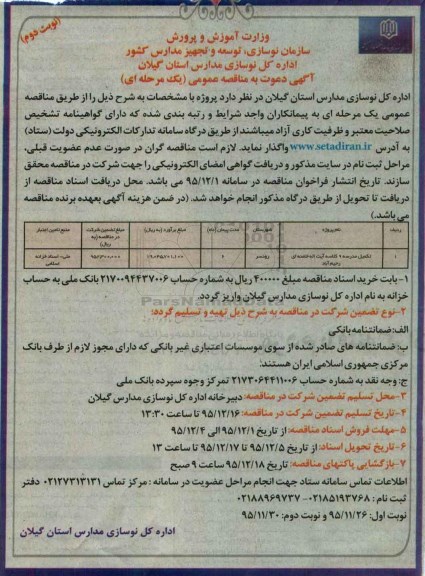 (نوبت دوم)
وزارت آموزش و پرورش
سازمان نوسازی، توسعه و تجهیز مدارس کشور
اداره کل نوسازی مدارس استان گیلان
آگهی دعوت به مناقصه عمومی (یک مرحله ای)
اداره کل نوسازی مدارس استان گیلان در نظر دارد پروژه با مشخصات به شرح ذیل را از طریق مناقصه
عمومی یک مرحله ای به پیمانکاران واجد شرایط و رتبه بندی شده که دارای گواهینامه تشخیص
صلاحیت معتبر و ظرفیت کاری آزاد میباشند از طریق درگاه سامانه تدارکات الکترونیکی دولت (ستاد)
به آدرس www.setadiran.ir واگذار نماید. لازم است مناقصه گران در صورت عدم عضویت قبلی،
مراحل ثبت نام در سایت مذکور و دریافت گواهی امضای الکترونیکی را جهت شرکت در مناقصه محقق
سازند. تاریخ انتشار فراخوان مناقصه در سامانه ۹۵/۱۲/۱ می باشد. محل دریافت اسناد مناقصه از
دریافت تا تحویل از طریق درگاه مذکور انجام خواهد شد. (در ضمن هزینه آگهی بعهده برنده مناقصه
می باشد.)
ردیف نام پروژه شهرستان مدت پیمان (ماه) مبلغ برآورد (به ریال) مبلغ تضمین شرکت در مناقصه (به ریال) منبع تامین اعتبار
۱ تکمیل مدرسه ۶ کلاسه رودسر
۱-بابت خرید اسناد مناقصه مبلغ ۴۰۰۰۰۰ ریال به شماره حساب ۲۱۷۰۰۹۴۴۳۷۰۰۶ بانک ملی به حساب
خزانه به نام اداره کل نوسازی مدارس گیلان واریز گردد.
۲-نوع تضمین شرکت در مناقصه به شرح ذیل تهیه و تسلیم گردد:
الف:ضمانتنامه بانکی
ب: ضمانتنامه های صادر شده از سوی موسسات اعتباری غیر بانکی که دارای مجوز لازم از طرف بانک
مرکزی جمهوری اسلامی ایران هستند:
ج: وجه نقد به شماره حساب ۲۱۷۳۰۶۴۴۱۱۰۰۶ تمرکز وجوه سپرده بانک ملی
۳-محل تسلیم تضمین شرکت در مناقصه: دبیرخانه اداره کل نوسازی مدارس گیلان
۴-تاریخ تسلیم تضمین شرکت در مناقصه: ۹۵/۱۲/۱۶ تا ساعت ۱۳:۳۰
۵-مهلت فروش اسناد مناقصه: از تاریخ ۹۵/۱۲/۱ الی ۹۵/۱۲/۴
۶-تاریخ تحویل اسناد: از تاریخ ۹۵/۱۲/۵ تا ۹۵/۱۲/۱۷ تا ساعت ۱۳
۷-بازگشایی پاکتهای مناقصه: تاریخ ۹۵/۱۲/۱۸ ساعت ۹ صبح
اطلاعات تماس سامانه ستاد جهت انجام مراحل عضویت در سامانه : مرکز تماس ۰۲۱۲۷۳۱۳۱۳۱ دفتر
ثبت نام : ۰۲۱۸۵۱۹۳۷۶۸-۰۲۱۸۸۹۶۹۷۳۷
نوبت اول: ۹۵/۱۱/۲۶ و نوبت دوم: ۹۵/۱۱/۳۰
اداره کل نوسازی مدارس استان گیلان